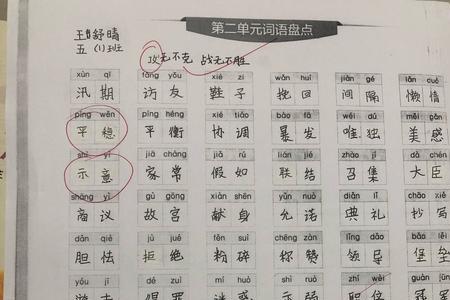 王舒晴
五(1)班
第二单元词语盘点
攻无不克 战无不胜
xùn qī fǎng yǒu xié zi wǎn huí jiàn gé lǎn duò
汛期 访友 鞋子 挽回 间隔 懒惰
píng wěn píng héng xié tiáo bào fā wéi dú měi gǎn
平稳 平衡 协调 暴发 唯独 美感
shì yì jiā cháng jiǎ rú lián jié zhào jí dà chén
示意 家常 假如 联结 召集 大臣
shāng yì gù gōng xiàn shēn yǔn nuò diǎn lǐ chāo xiě
商议 故宫 献身 允诺 典礼 抄写
dǎn qiè jù jué fěn suì chēng zàn lǐng dǎo bǎo lěi
胆怯 拒绝 粉碎 称赞 领导 堡垒
yóu jī dé zuì mí huò shì ruò zhí wèi guàn jūn